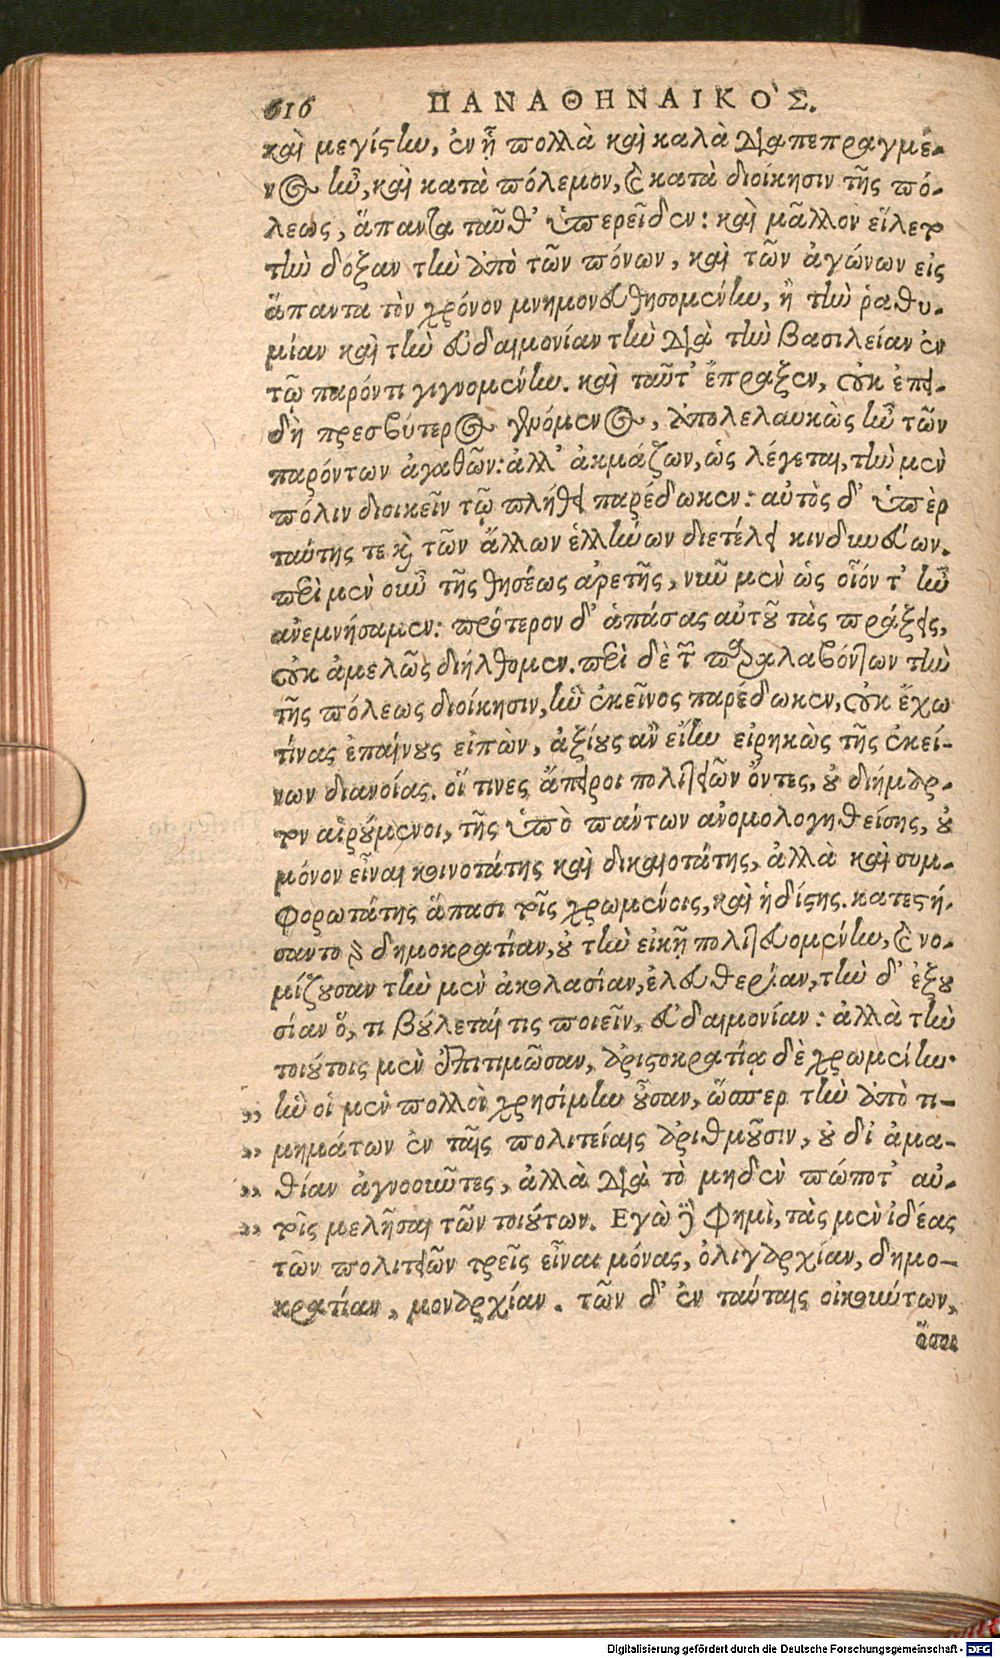 616 ΠΑΝΑΘΗΝΑΙΚΟ`Σ.
καὶ μεγίστην, ἐν ᾗ πολλὰ καὶ καλὰ διαπεπραγμέ-
νος ἦν, καὶ κατὰ πόλεμον, καὶ κατὰ διοίκησιν τῆς πό-
λεως, ἅπαντα ταῦθ' ὑπερεῖδεν: καὶ μᾶλλον εἵλετο
τὴν δόξαν τὴν ἀπὸ τῶν πόνων, καὶ τῶν ἀγώνων εἰς
ἅπαντα τὸν χρόνον μνημονευθησομένην, ἢ τὴν ῥαθυ-
μίαν καὶ τὴν εὐδαιμονίαν τὴν διὰ τὴν βασιλείαν ἐν
τῷ παρόντι γιγνομένην. καὶ ταῦτ' ἔπραξεν, οὐκ ἐπει-
δὴ πρεσβύτερος γενόμενος, ἀπολελαυκὼς ἦν τῶν
παρόντων ἀγαθῶν: ἀλλ' ἀκμάζων, ὡς λέγεται, τὴν μὲν
πόλιν διοικεῖν τῷ πλήθει παρέδωκεν: αὐτὸς δ' ὑπὲρ
ταύτης τε καὶ τῶν ἄλλων ἑλλήνων διετέλει κινδυνεύων.
περὶ μὲν οὖν τῆς θησέως ἀρετῆς, νῦν μὲν ὡς οἷόν τ' ἦν
ἀνεμνήσαμεν: πρότερον δ' ἁπάσας αὐτοῦ τὰς πράξεις,
οὐκ ἀμελῶς διήλθομεν. περὶ δὲ τῶν παραλαβόντων τὴν
τῆς πόλεως διοίκησιν, ἣν ἐκεῖνος παρέδωκεν, οὐκ ἔχω
τίνας ἐπαίνους εἰπὼν, ἀξίους ἂν εἴην εἰρηκὼς τῆς ἐκεί-
νων διανοίας. οἵ τινες ἄπειροι πολιτειῶν ὄντες, οὐ διήμαρ-
τον αἱρούμενοι, τῆς ὑπὸ πάντων ἀνομολογηθείσης, οὐ
μόνον εἶναι κοινοτάτης καὶ δικαιοτάτης, ἀλλὰ καὶ συμ-
φορωτάτης ἅπασι τοῖς χρωμένοις, καὶ ἡδίστης. κατεστή-
σαντο γὰρ δημοκρατίαν, οὐ τὴν εἰκῇ πολιτευομένην, καὶ νο-
μίζουσαν τὴν μὲν ἀκολασίαν, ἐλευθερίαν, τὴν δ' ἐξου
σίαν ὅ, τι βούλεταί τις ποιεῖν, εὐδαιμονίαν: ἀλλὰ τὴν
τοιούτοις μὲν ἐπιτιμῶσαν, ἀριστοκρατίᾳ δὲ χρωμένην·
„ ἣν οἱ μὲν πολλοὶ χρησίμην οὖσαν, ὥσπερ τὴν ἀπὸ τι-
„ μημάτων ἐν ταῖς πολιτείαις ἀριθμοῦσιν, οὐ δι' ἀμα-
„ θίαν ἀγνοοῦντες, ἀλλὰ διὰ τὸ μηδὲν πώποτ' αὐ-
„ τοῖς μελῆσαι τῶν τοιούτων. Εγὼ δέ φημὶ, τὰς μὲν ἰδέας
τῶν πολιτειῶν τρεῖς εἶναι μόνας, ὀλιγαρχίαν, δημο-
κρατίαν, μοναρχίαν. τῶν δ' ἐν ταύταις οἰκούντων,
ὅσοι
Digitalisierung gefördert durch die Deutsche Forschungsgemeinschaft - DFG